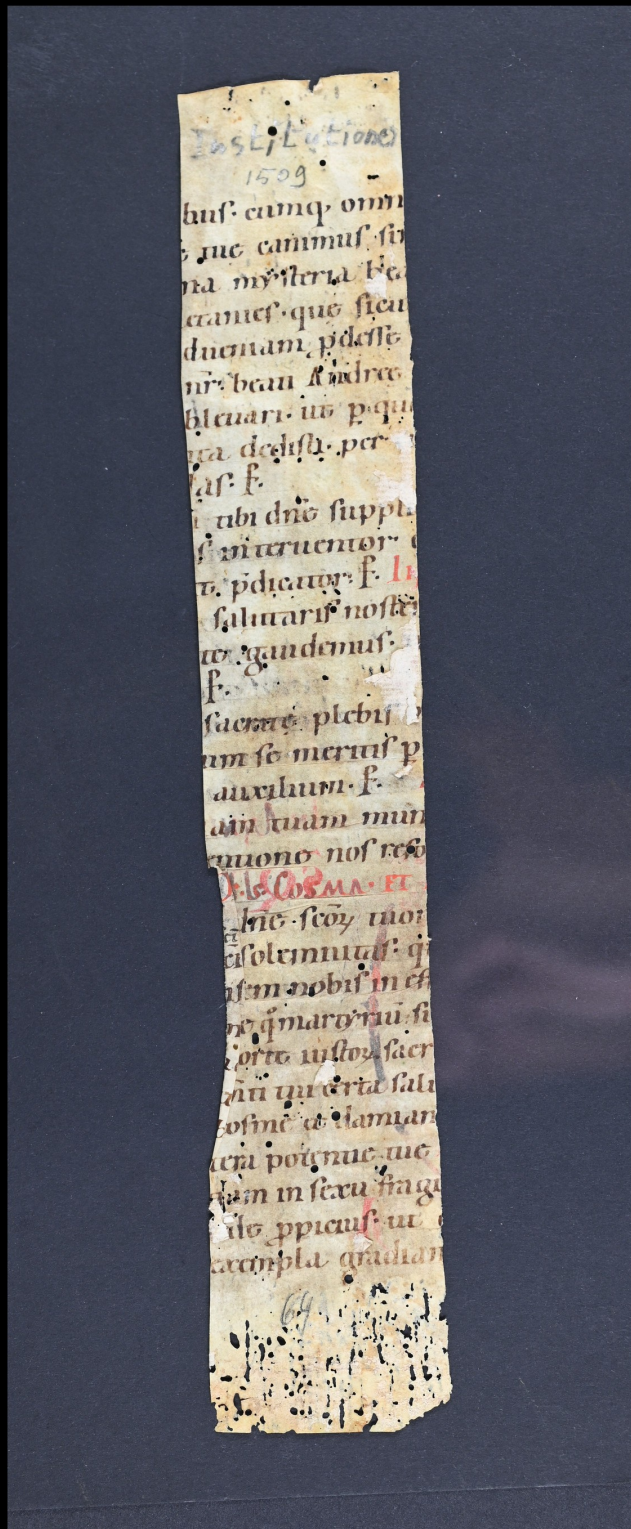 Institutiones
1509
bus· cumq; omn
tue cantmus· sin
na mysteria bea
erantes· que sicu
dueniam pdesse
nr̄· beati Andree
bleuari· ut p qu
ita dedisti· per
las· f·
tibi dn̄e suppli
s interuentor·
t pdicator· f· In
salutaris nostri
te gaudemus·
f·
sacrate plebis
um se meritis p
auxilium· f·
am tuam mun
auxilium
atione nos refo
COSMA· ET
hn̄e· sc̄oꝝ tuoꝝ
solemnitas· q
asem nobis in
ne q̄ martyriū· si
orte iustoꝝ sacr
certa salu
cosme et damian
tera potentie tue
dam in sexu fragi
de ppicius· ut
exempla gradian
69